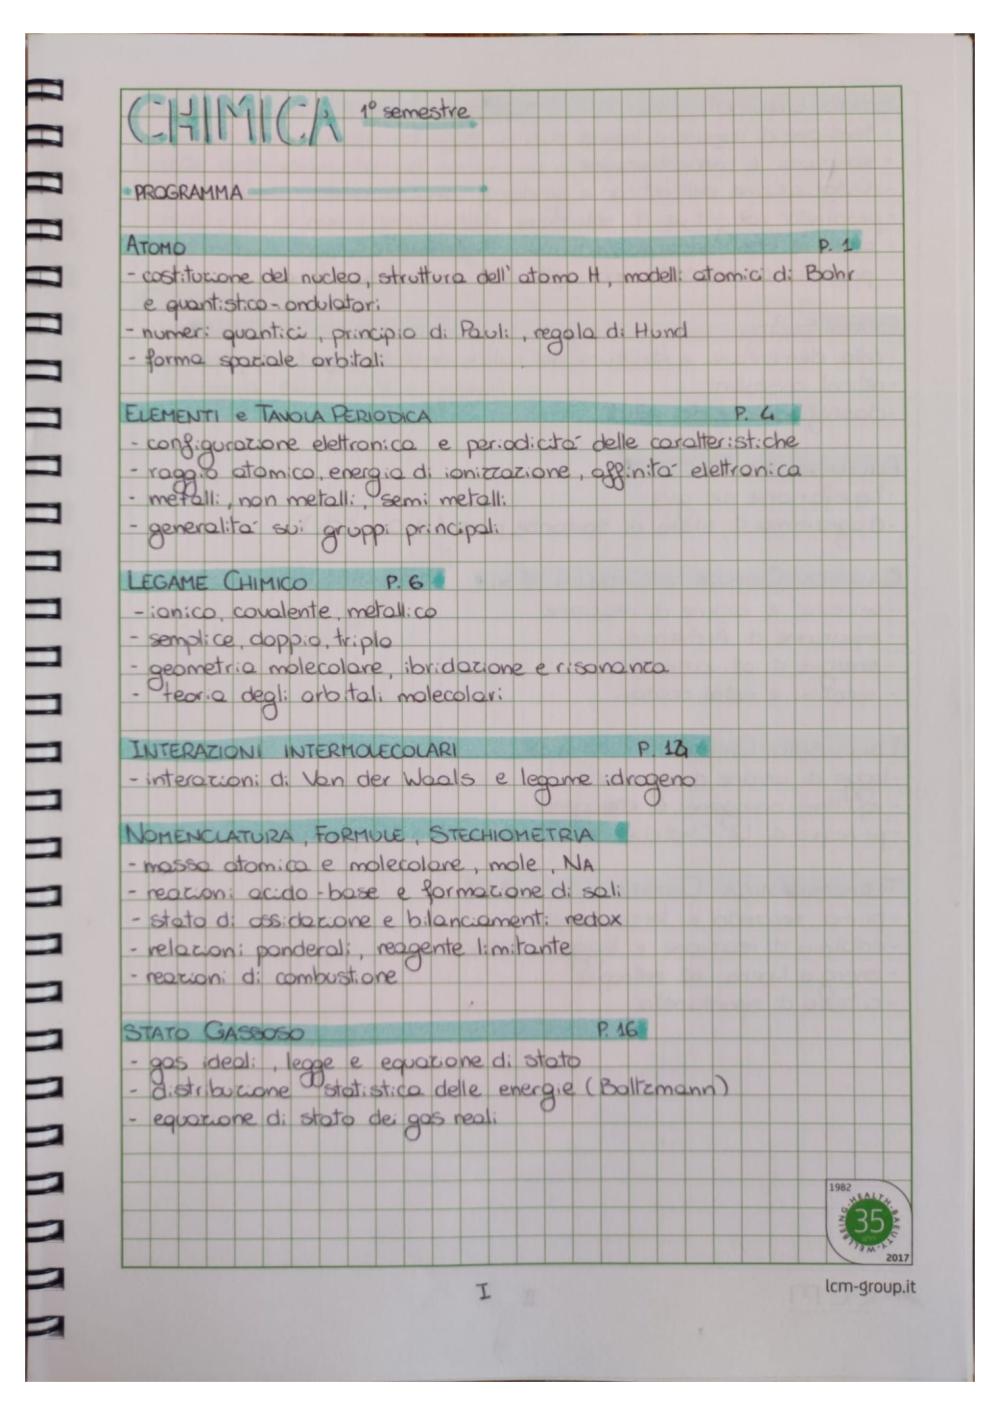 CHIMICA 1° semestre
PROGRAMMA
ATOMO P. 1
- costituzione del nucleo, struttura dell'atomo H, modelli atomici di Bohr
e quantistico-ondulatori
- numeri quantici, principio di Pauli, regola di Hund
- forma spaziale orbitali
ELEMENTI e TAVOLA PERIODICA P. 4
- configurazione elettronica e periodicità delle caratteristiche
- raggio atomico, energia di ionizzazione, affinità elettronica
- metalli, non metalli, semi metalli
- generalità sui gruppi principali
LEGAME CHIMICO P. 6
- ionico, covalente, metallico
- semplice, doppio, triplo
- geometria molecolare, ibridazione e risonanza
- teoria degli orbitali molecolari
INTERAZIONI INTERMOLECOLARI P.
- interazioni di Van der Waals e legame idrogeno
NOMENCLATURA, FORMULE, STECHIOMETRIA
- massa atomica e molecolare, mole, NA
- reazioni acido-base e formazione di sali
- stato di ossidazione e bilanciamenti redox
- relazioni ponderali, reagente limitante
- reazioni di combustione
STATO GASSOSO P. 16
- gas ideali, legge e equazione di stato
- distribuzione statistica delle energie (Boltzmann)
- equazione di stato dei gas reali
1982
WELLBEING-HEALTH-BAEUTY-WELLBEING
35
2017
I
lcm-group.it